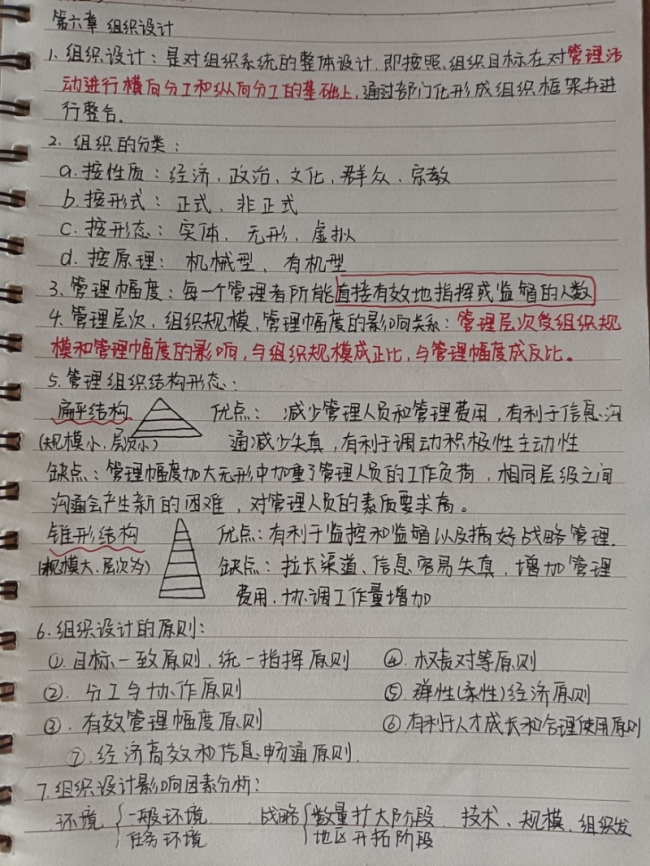 第六章 组织设计
1、组织设计：是对组织系统的整体设计，即按照组织目标在对管理活
动进行横向分工和纵向分工的基础上，通过部门化形成组织框架并进
行整合。
2. 组织的分类：
a. 按性质：经济、政治、文化、群众、宗教
b. 按形式：正式、非正式
c. 按形态：实体、无形、虚拟
d. 按原理：机械型、有机型
3、管理幅度：每一个管理者所能直接有效地指挥或监督的人数
4、管理层次、组织规模、管理幅度的影响关系：管理层次受组织规
模和管理幅度的影响，与组织规模成正比，与管理幅度成反比。
5、管理组织结构形态：
扁平结构 优点：减少管理人员和管理费用，有利于信息沟
(规模小、层次小) 通减少失真，有利于调动积极性主动性
缺点：管理幅度加大无形中加重了管理人员的工作负荷，相同层级之间
沟通会产生新的困难，对管理人员的素质要求高。
锥形结构 优点：有利于监控和监督以及搞好战略管理.
(规模大、层次为) 缺点：拉长渠道、信息容易失真，增加管理
费用，协调工作量增加
6、组织设计的原则：
①. 目标一致原则、统一指挥原则 ④. 权责对等原则
②. 分工与协作原则 ⑤. 弹性(柔性)经济原则
③. 有效管理幅度原则 ⑥有利于人才成长和合理使用原则
⑦. 经济高效和信息畅通原则.
7. 组织设计影响因素分析：
环境 { 一般环境 战略 { 数量扩大阶段 技术、规模、组织发
任务环境 地区开拓阶段